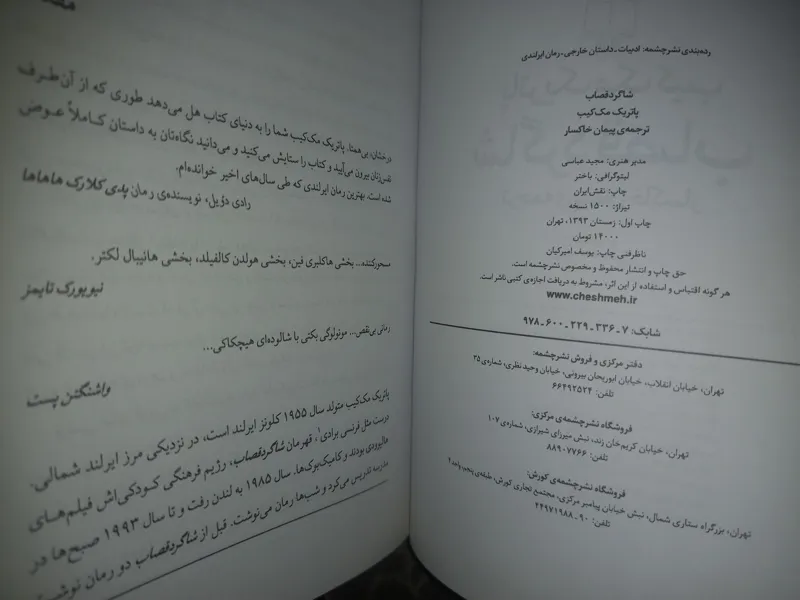 رده‌بندی نشرچشمه: ادبیات ـ داستان خارجی ـ رمان ایرلندی
شاگردقصاب
پاتریک مک‌کیب
ترجمه‌ی پیمان خاکسار
مدیر هنری: مجید عباسی
لیتوگرافی: باختر
چاپ: نقش‌ایران
تیراژ: ۱۵۰۰ نسخه
چاپ اول: زمستان ۱۳۹۳، تهران
۱۴۰۰۰ تومان
ناظر فنی چاپ: یوسف امیرکیان
حق چاپ و انتشار محفوظ و مخصوص نشرچشمه است.
هر گونه اقتباس و استفاده از این اثر، مشروط به دریافت اجازه‌ی کتبی ناشر است.
www.cheshmeh.ir
شابک: ۷ ـ ۳۳۶ ـ ۲۲۹ ـ ۶۰۰ ـ ۹۷۸
دفتر مرکزی و فروش نشرچشمه:
تهران، خیابان انقلاب، خیابان ابوریحان بیرونی، خیابان وحید نظری، شماره‌ی ۳۵
تلفن: ۶۶۴۹۲۵۲۴
فروشگاه نشرچشمه‌ی مرکزی:
تهران، خیابان کریم‌خان زند، نبش میرزای شیرازی، شماره‌ی ۱۰۷
تلفن: ۸۸۹۰۷۷۶۶
فروشگاه نشرچشمه‌ی کورش:
تهران، بزرگراه ستاری شمال، نبش خیابان پیامبر مرکزی، مجتمع تجاری کورش، طبقه‌ی پنجم، واحد ۴
تلفن: ۹۰ ـ ۴۴۹۷۱۹۸۸
درخشان، بی‌همتا. پاتریک مک‌کیب شما را به دنیای کتاب هل می‌دهد طوری که از آن‌طرف
نفس‌زنان بیرون می‌آیید و کتاب را ستایش می‌کنید و می‌دانید نگاه‌تان به داستان کاملاً عوض
شده است. بهترین رمان ایرلندی که طی سال‌های اخیر خوانده‌ام.
رادی دؤیل، نویسنده‌ی رمان پدی کلارک هاهاها
مسحورکننده... بخشی هاکلبری فین، بخشی هولدن کالفیلد، بخشی هانیبال لکتر.
نیویورک تایمز
رمانی بی‌نقص... مونولوگی بکتی با شالوده‌ای هیچکاکی...
واشنگتن پست
پاتریک مک‌کیب متولد سال ۱۹۵۵ کلونز ایرلند است، در نزدیکی مرز ایرلند شمالی.
درست مثل فرنسی برادی۱، قهرمان شاگردقصاب، رژیم فرهنگی کودکی‌اش فیلم‌های
هالیوودی بودند و کامیک‌بوک‌ها. سال ۱۹۸۵ به لندن رفت و تا سال ۱۹۹۳ صبح‌ها در
مدرسه تدریس می‌کرد و شب‌ها رمان می‌نوشت. قبل از شاگردقصاب دو رمان نوشت